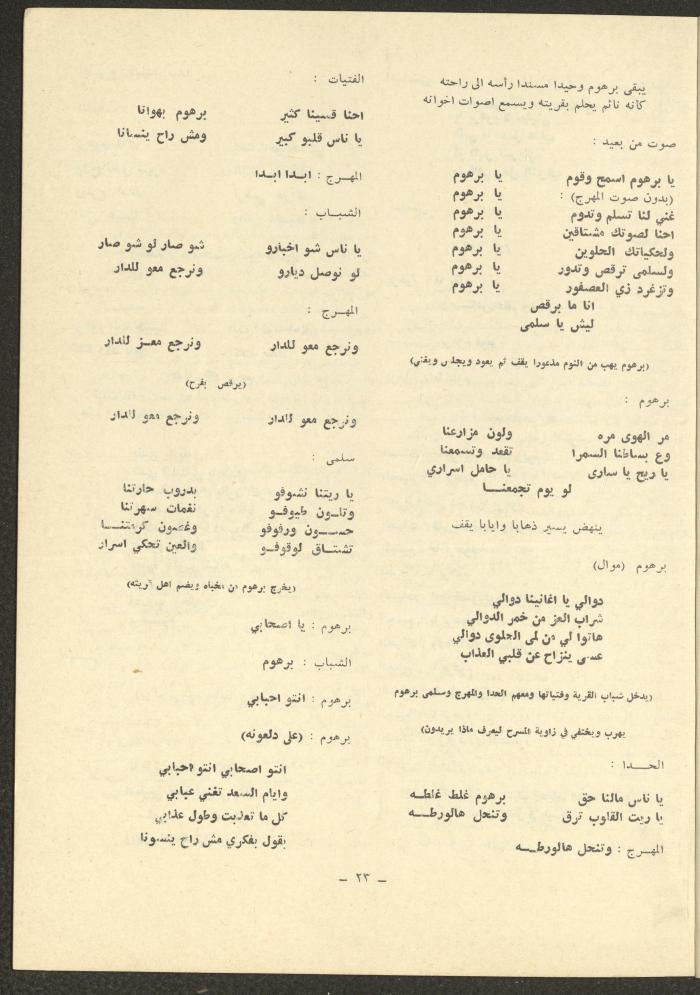 يبقى برهوم وحيدا مسندا رأسه الى راحته
كانه نائم يحلم بقريته ويسمع اصوات اخوانه
صوت من بعيد :
يا برهوم اسمح وقوم يا برهوم
(بدون صوت المهرج) : يا برهوم
غني لنا تسلم وتدوم يا برهوم
احنا لصوتك مشتاقين يا برهوم
ولحكياتك الحلوين يا برهوم
ولسلمى ترقص وتدور يا برهوم
وتزغرد زي العصفور يا برهوم
انا ما برقص
ليش يا سلمى
(برهوم يهب من النوم مذعورا يقف ثم يعود ويجلس ويغني)
برهوم :
مر الهوى مره ولون مزارعنا
وع بساطنا السمرا تقعد وتسمعنا
يا ريح يا سارى يا حامل اسراري
لو يوم تجمعنـــا
ينهض يسير ذهابا وايابا يقف
برهوم (موال)
دوالي يا اغانينا دوالي
شراب العز من خمر الدوالي
هاتوا لي من لمى الحلوى دوالي
عسى ينزاح عن قلبي العذاب
(يدخل شباب القرية وفتياتها ومعهم الحدا والمهرج وسلمى برهوم
يهرب ويختفي في زاوية المسرح ليعرف ماذا يريدون)
الحـــدا :
يا ناس مالنا حق برهوم غلط غلطـه
يا ريت القلوب ترق وتنحل هالورطـــه
المهـــرج : وتنحل هالورطـــه
الفتيات :
احنا قسينا كثير برهوم بهوانا
يا ناس قلبو كبير ومش راح ينسانا
المهـرج : ابـدا ابـدا
الشبـاب :
يا ناس شو اخبارو شو صار لو شو صار
لو نوصل ديارو ونرجع معو للدار
المهـرج :
ونرجع معو للدار ونرجع معـو للدار
(يرقص بفرح)
ونرجع معو للدار ونرجع معو للدار
سلمى :
يا ريتنا نشوفو بدروب حارتنا
وتلـون طيوفـو نغمات سهرتنا
حســـون ورفوفو وغصون كرمتنـــا
تشتـاق لوقوفـو والعين تحكي اسرار
(يخرج برهوم من الخباه ويضم اهل قريته)
برهوم : يا اصحابي
الشباب : برهوم
برهوم : انتو احبابي
برهوم : (على دلعونه)
انتو اصحابي انتو احبابي
وايام السعد تغني عبابي
كل ما تعذبت وطول عذابي
بقول بفكري مش راح ينسونا
– ٢٣ –